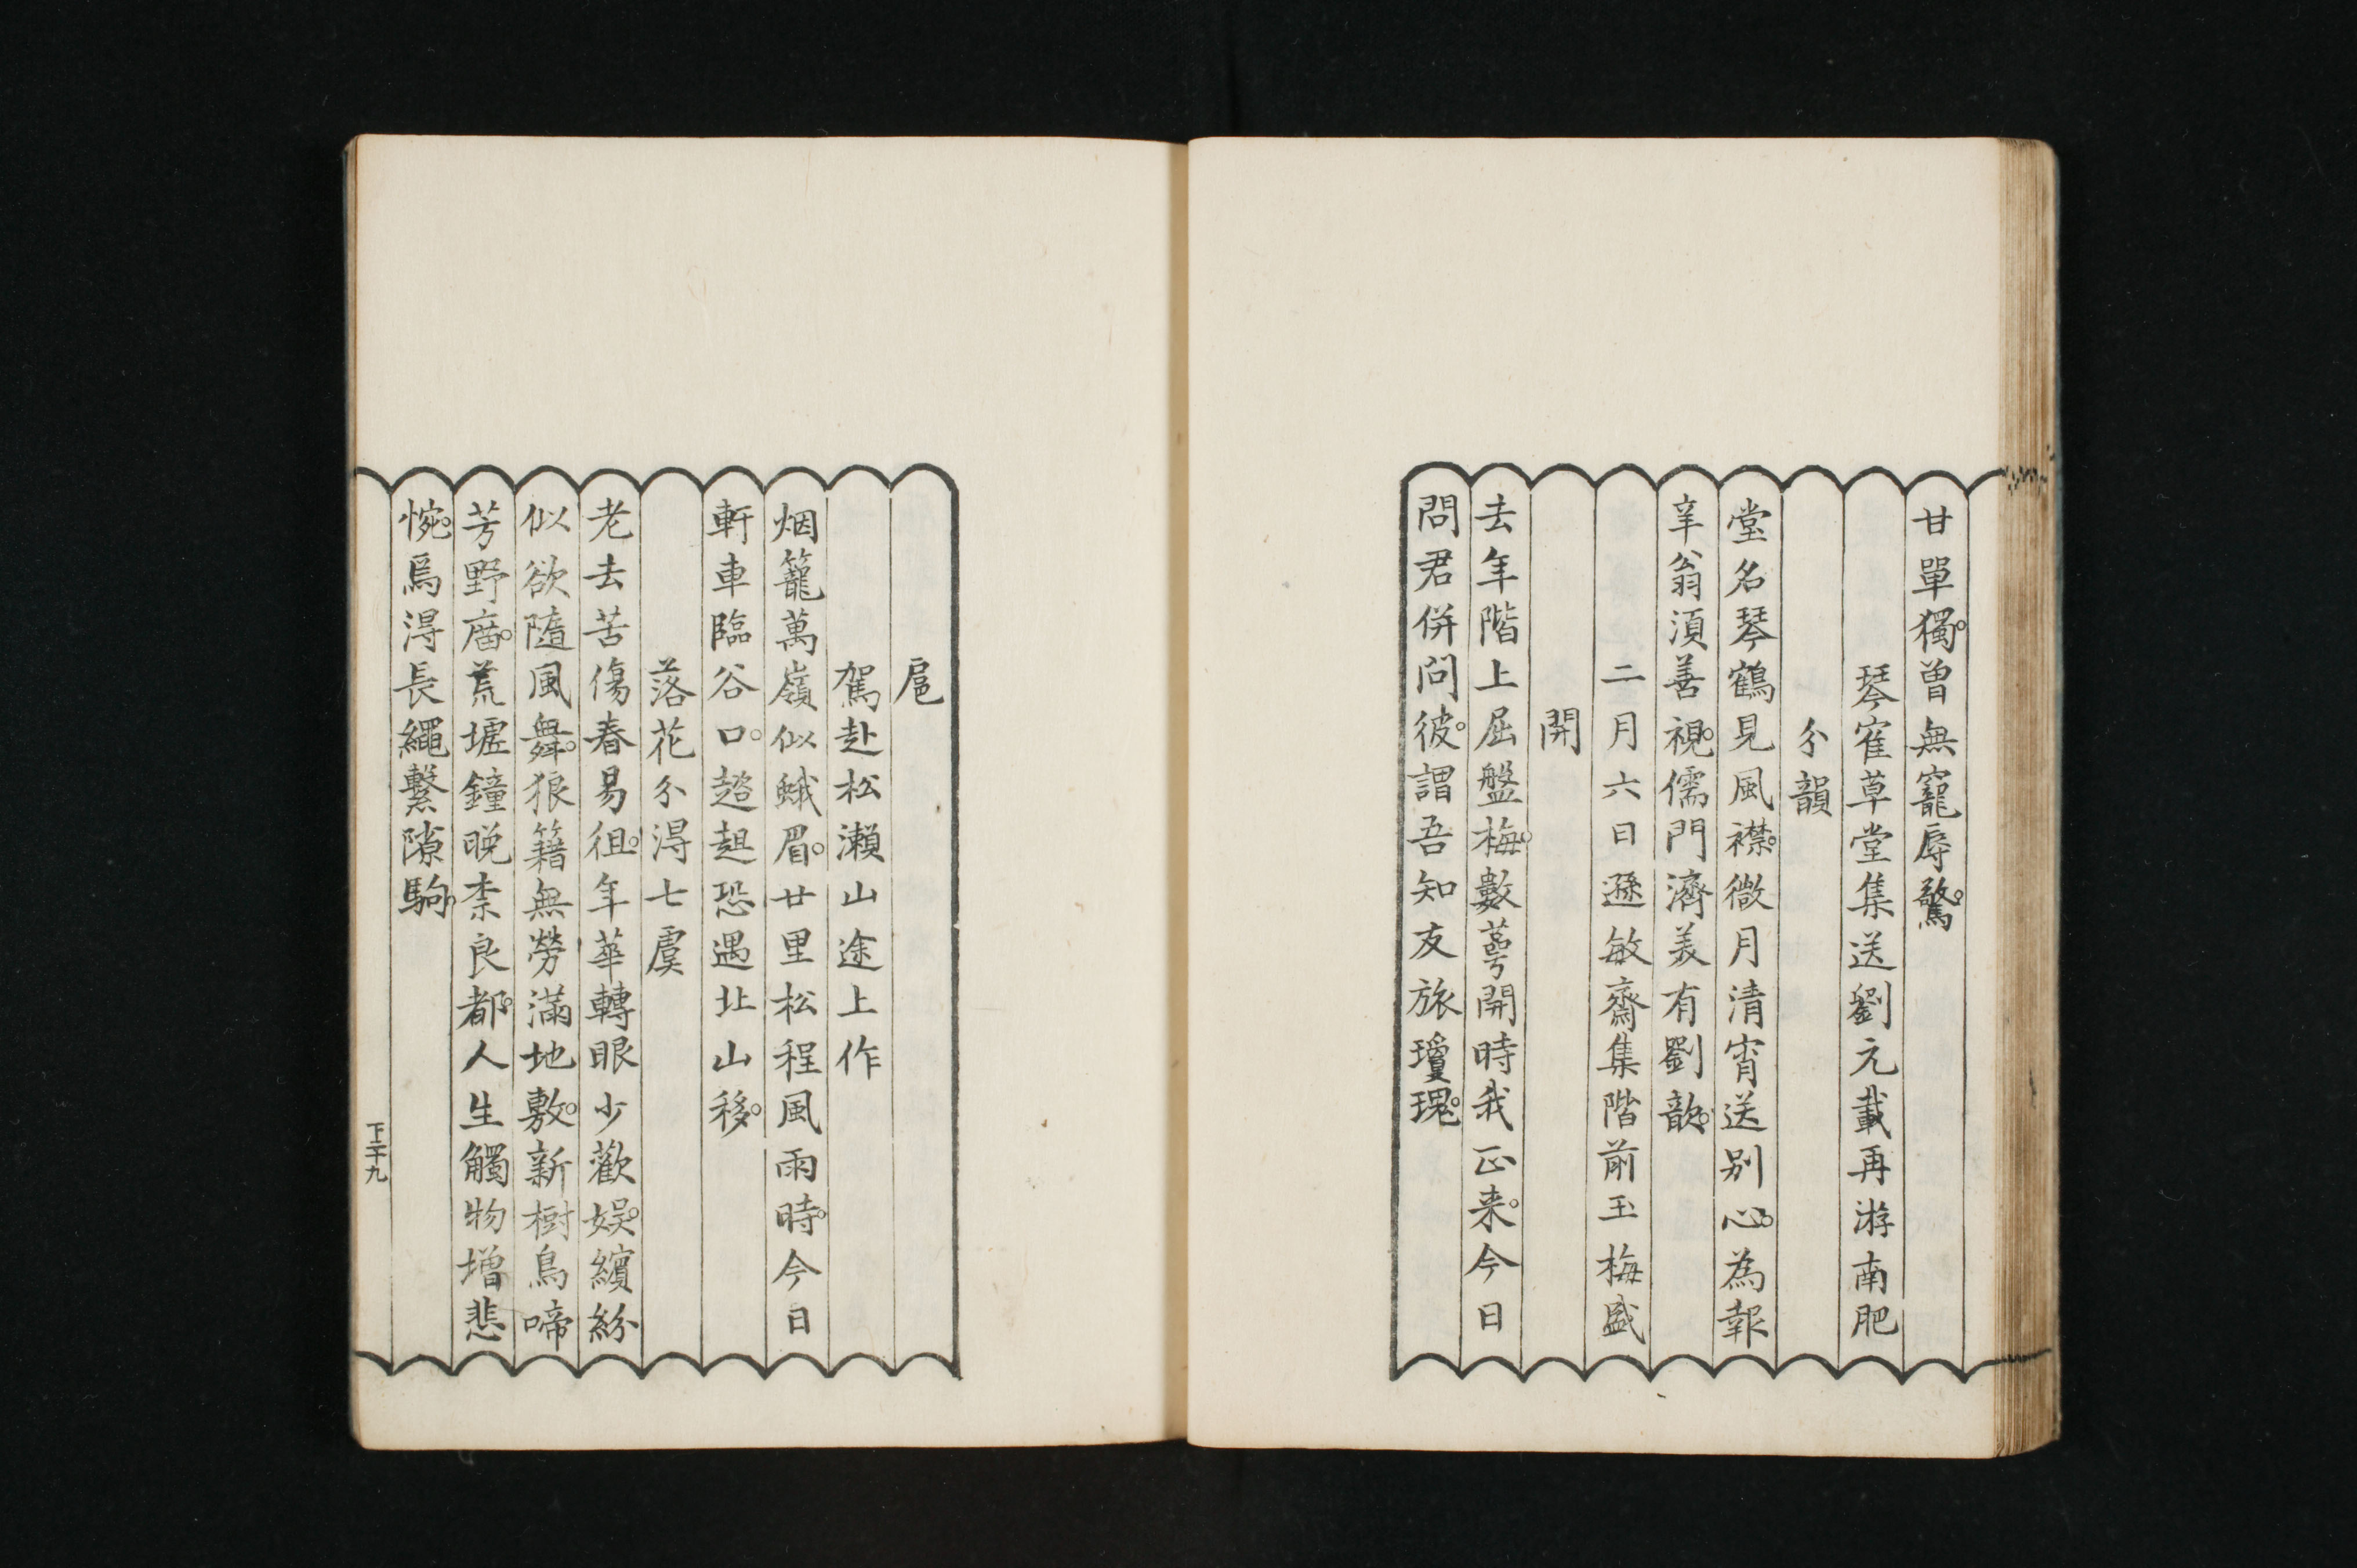 甘單獨。曽無寵辱驚。
琴寉草堂集送劉元載再游南肥
分韻
堂名琴鶴見風襟。微月清宵送別心。為報
辛翁湏善視。儒門濟美有劉歆。
二月六日遜敏齋集階前玉梅盛
開
去年階上屈盤梅。數萼開時我正来。今日
問君併問彼。謂吾知友旅瓊瑰。
扈
駕赴松瀬山途上作
烟籠萬嶺似蛾眉。廿里松程風雨時。今日
軒車臨谷口。趦趄恐遇北山移。
落花分淂七虞
老去苦傷春易徂。年華轉眼少歡娯。繽紛
似欲隨風舞。狼籍無勞滿地敷。新樹鳥啼
芳野廟。荒墟鐘晚柰良都。人生觸物増悲
惋。焉淂長繩繫隙駒。
下二十九